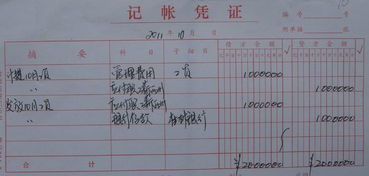 记帐凭证
编号 10 号
2011年10月 日 附单据 张
摘要 科目 子细目 借方金额 贷方金额
计提10月工资 管理费用 工资 1000000
〃 应付职工薪酬 1000000
发放10月工资 应付职工薪酬 1000000
〃 银行存款 1000000
合计 ¥2000000 ¥2000000